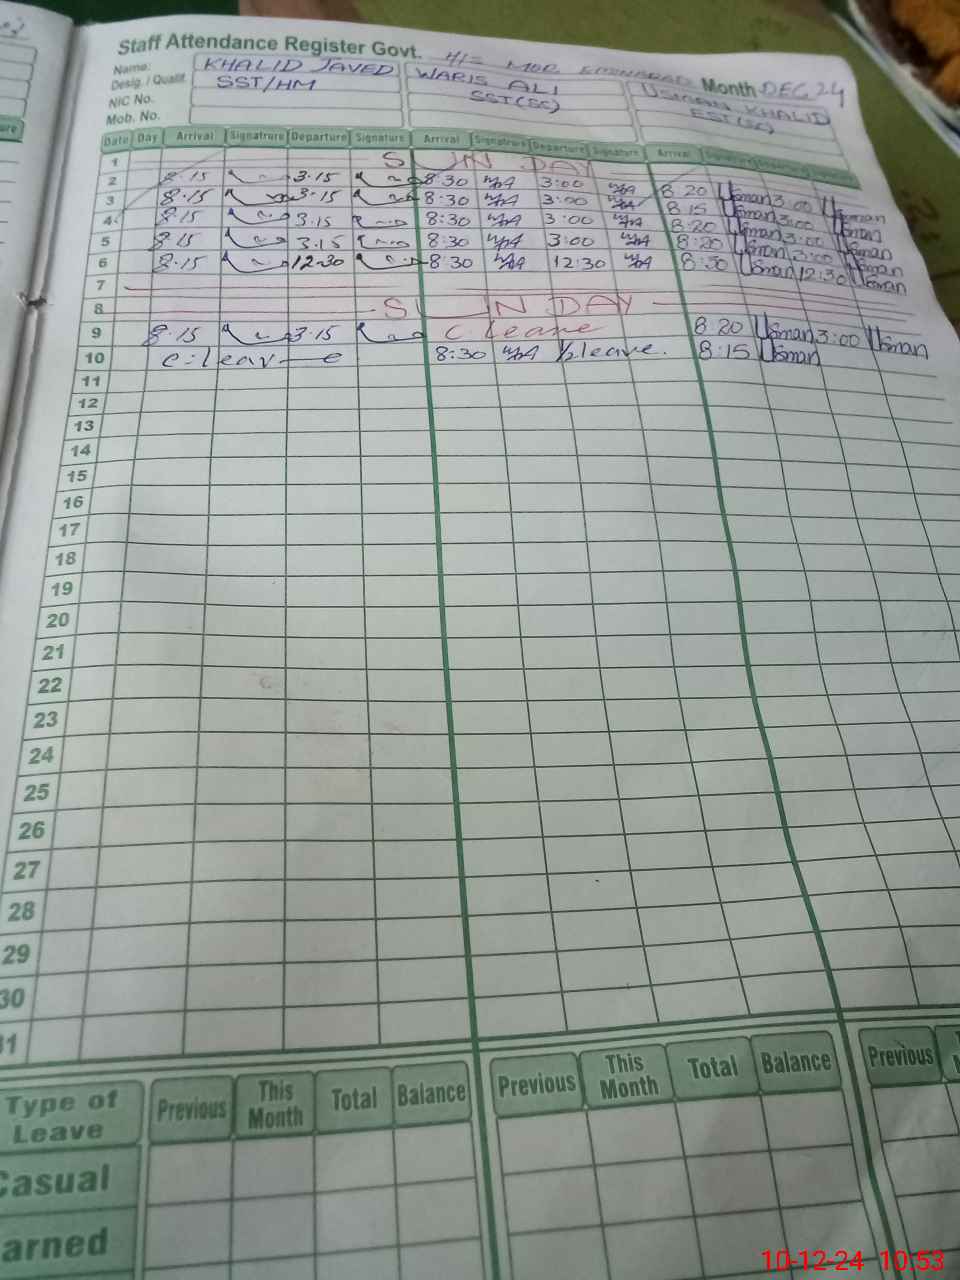 Staff Attendance Register Govt. H/S
Name: KHALID JAVED WARIS ALI USMAN KHALID Month DEC 24
Desig. / Qualif. SST/HM SST(SC) EST(SC)
NIC No.
Mob. No.
Date Day Arrival Signatrure Departure Signature Arrival Signatrure Departure Signature Arrival
1 SUNDAY
2 8.15 3.15 8:30 3:00 8:20 Usman 3:00 Usman
3 8.15 3.15 8:30 3:00 8:15 Usman 3:00 Usman
4 8.15 3.15 8:30 3:00 8:20 Usman 3:00 Usman
5 8.15 3.15 8:30 3:00 8:20 Usman 3:00 Usman
6 8.15 12.30 8:30 12:30 8:30 Usman 12:30 Usman
7
8 SUNDAY
9 8.15 3.15 C. leave 8:20 Usman 3:00 Usman
10 c.leave 8:30 1/2 leave. 8:15 Usman
11
12
13
14
15
16
17
18
19
20
21
22
23
24
25
26
27
28
29
30
31
Type of Leave Previous This Month Total Balance Previous This Month Total Balance Previous
Casual
Earned
10-12-24 10:53